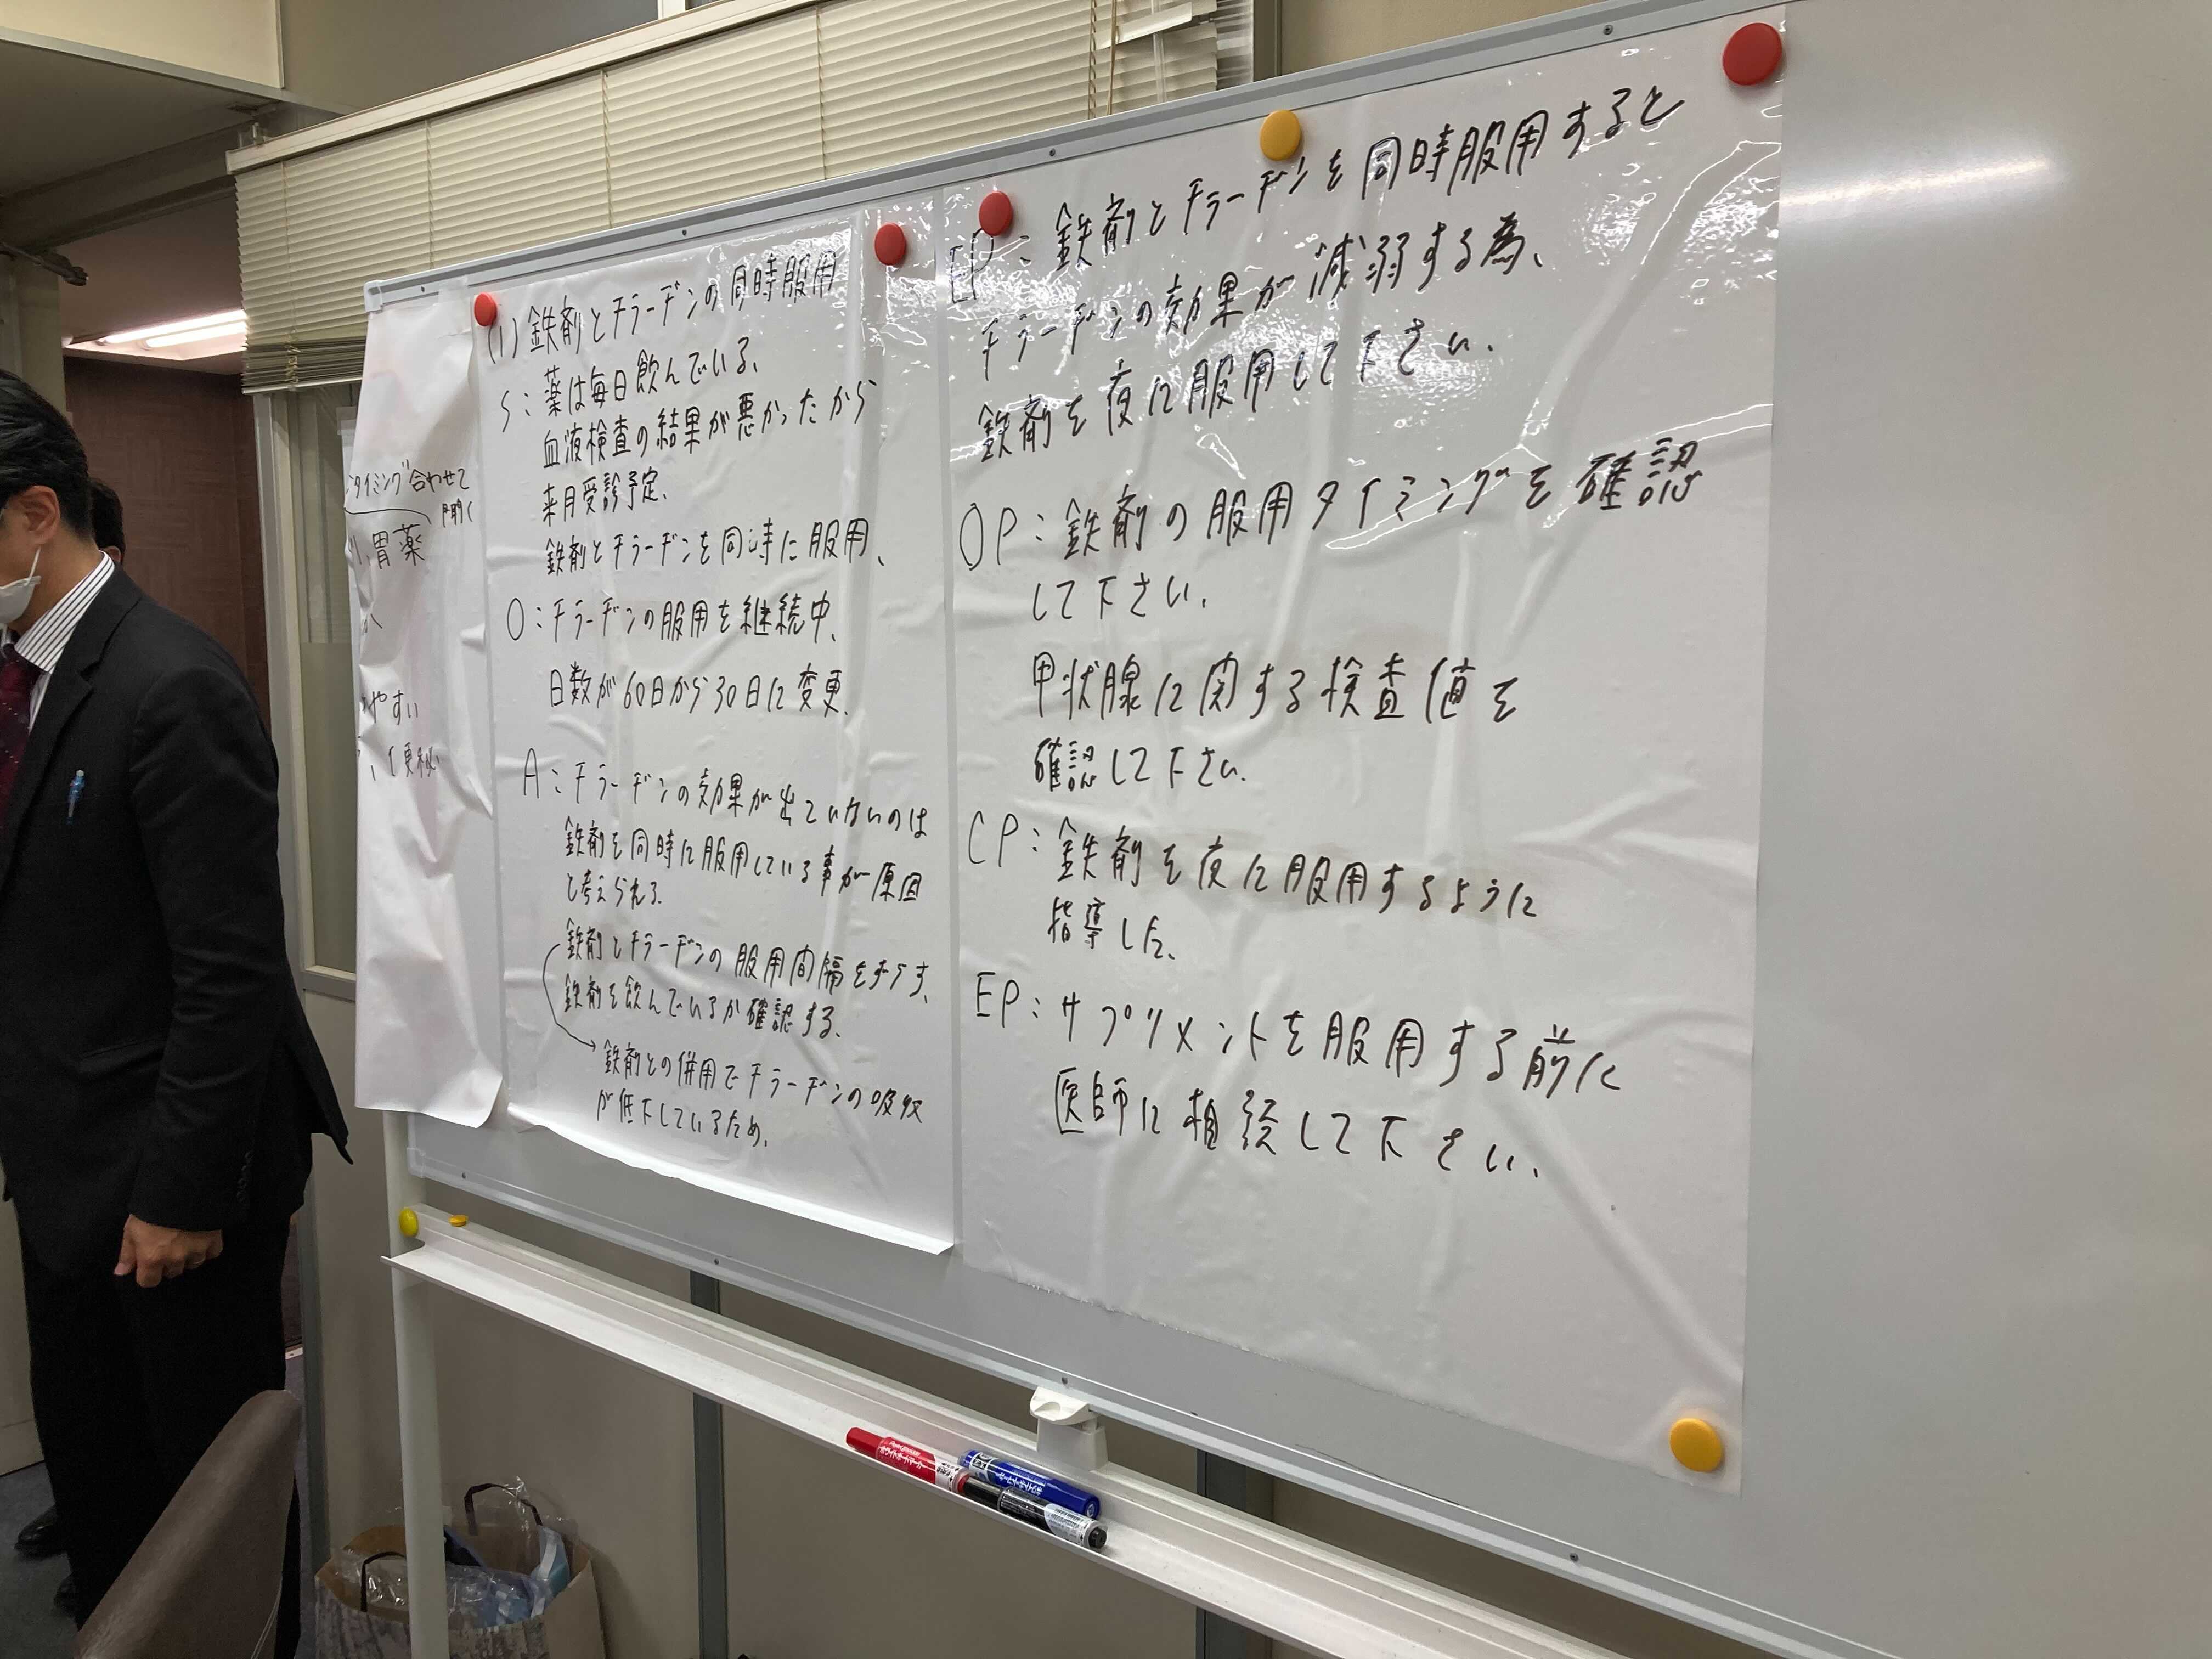 タイミング合わせて
胃薬
やすい
(1)鉄剤とチラーヂンの同時服用
S:薬は毎日飲んでいる、
血液検査の結果が悪かったから
来月受診予定、
鉄剤とチラーヂンを同時に服用、
O:チラーヂンの服用を継続中、
日数が60日から30日に変更、
A:チラーヂンの効果が出ていないのは
鉄剤を同時に服用している事が原因
と考えられる、
鉄剤とチラーヂンの服用間隔をずらす、
鉄剤を飲んでいるか確認する、
→鉄剤との併用でチラーヂンの吸収
が低下しているため、
EP:鉄剤とチラーヂンを同時服用すると
チラーヂンの効果が減弱する為、
鉄剤を夜に服用して下さい、
OP:鉄剤の服用タイミングを確認
して下さい、
甲状腺に関する検査値を
確認して下さい、
CP:鉄剤を夜に服用するように
指導した、
EP:サプリメントを服用する前に
医師に相談して下さい、